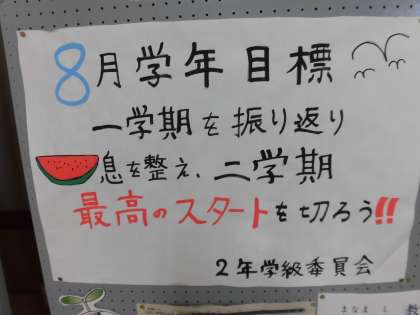 8月学年目標
一学期を振り返り
息を整え、二学期
最高のスタートを切ろう!!
2年学級委員会
まなまし